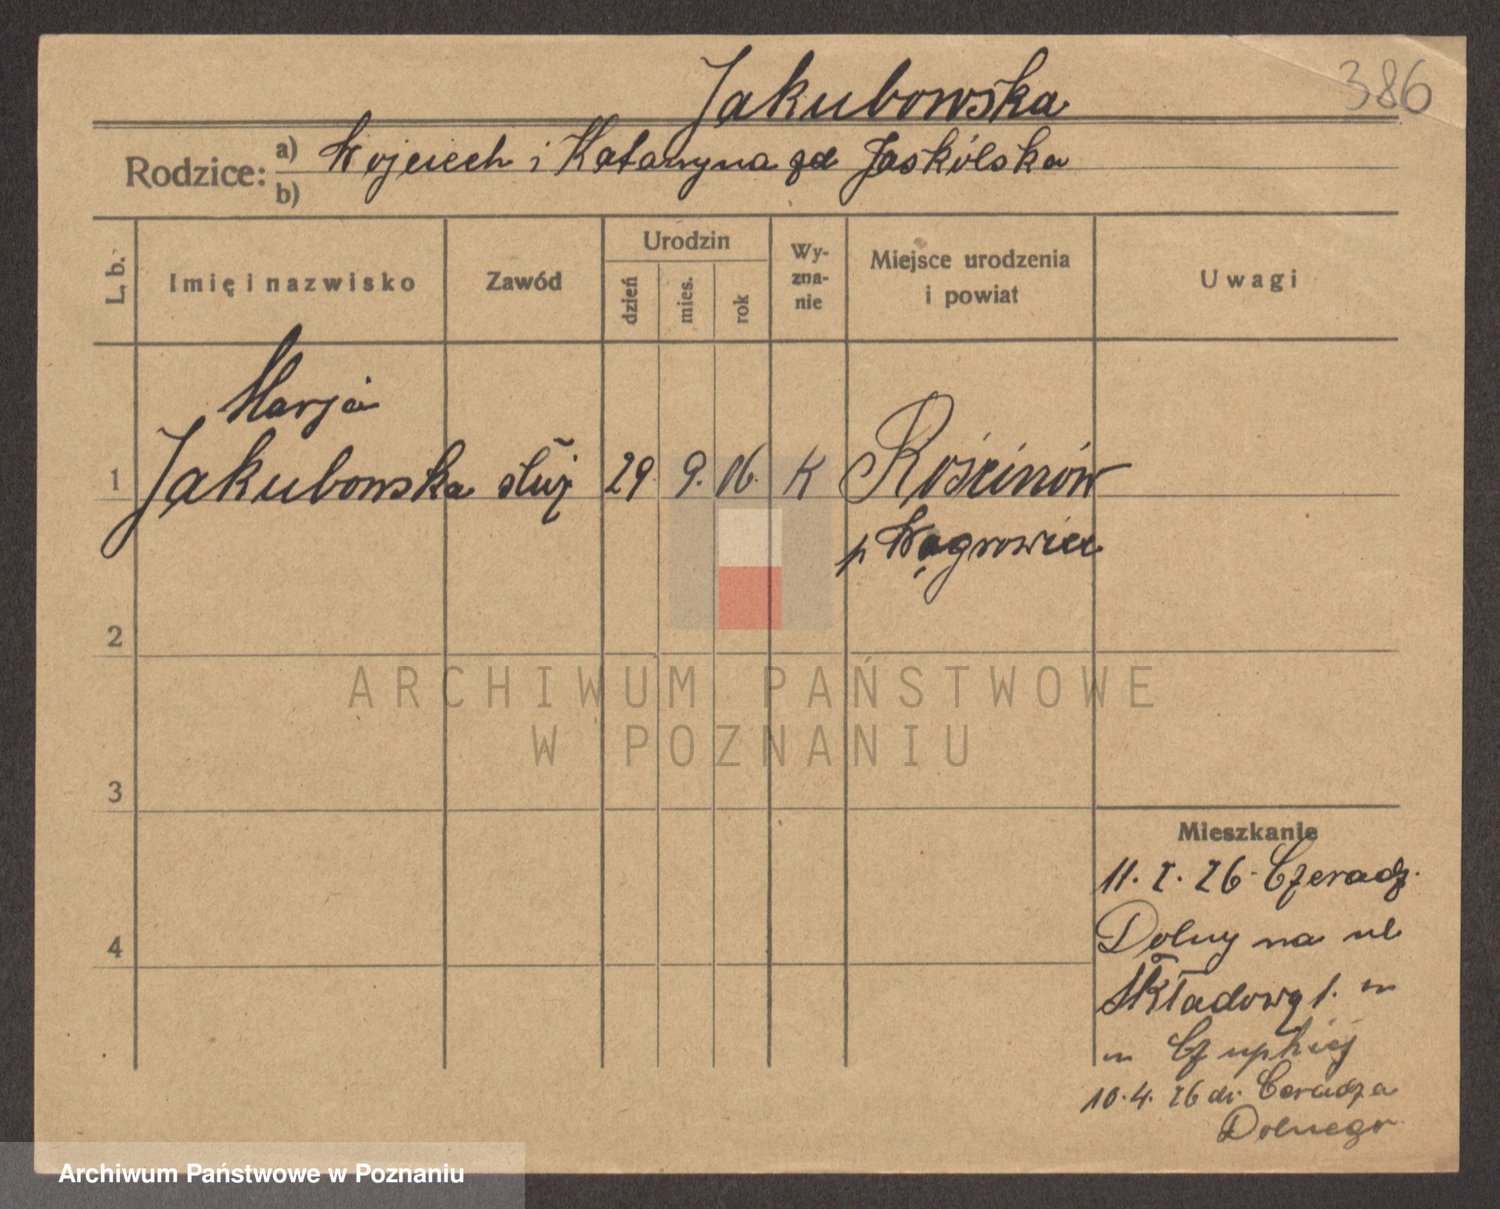 Jakubowska
386
Rodzice: a) Wojciech i Katarzyna zd Jaskólska
b)
L. b.
Imię i nazwisko
Zawód
Urodzin
dzień
mies.
rok
Wy-
zna-
nie
Miejsce urodzenia
i powiat
Uwagi
Marja
1 Jakubowska służ 29. 9. 06. K Rościnów
p Wągrowiec
2
ARCHIWUM PAŃSTWOWE
W POZNANIU
3
Mieszkanie
4
11. I. 26. Czeradz.
Dolny na ul
Składową 1. m
10. 4. 26 do Ceradza
Dolnego
Archiwum Państwowe w Poznaniu